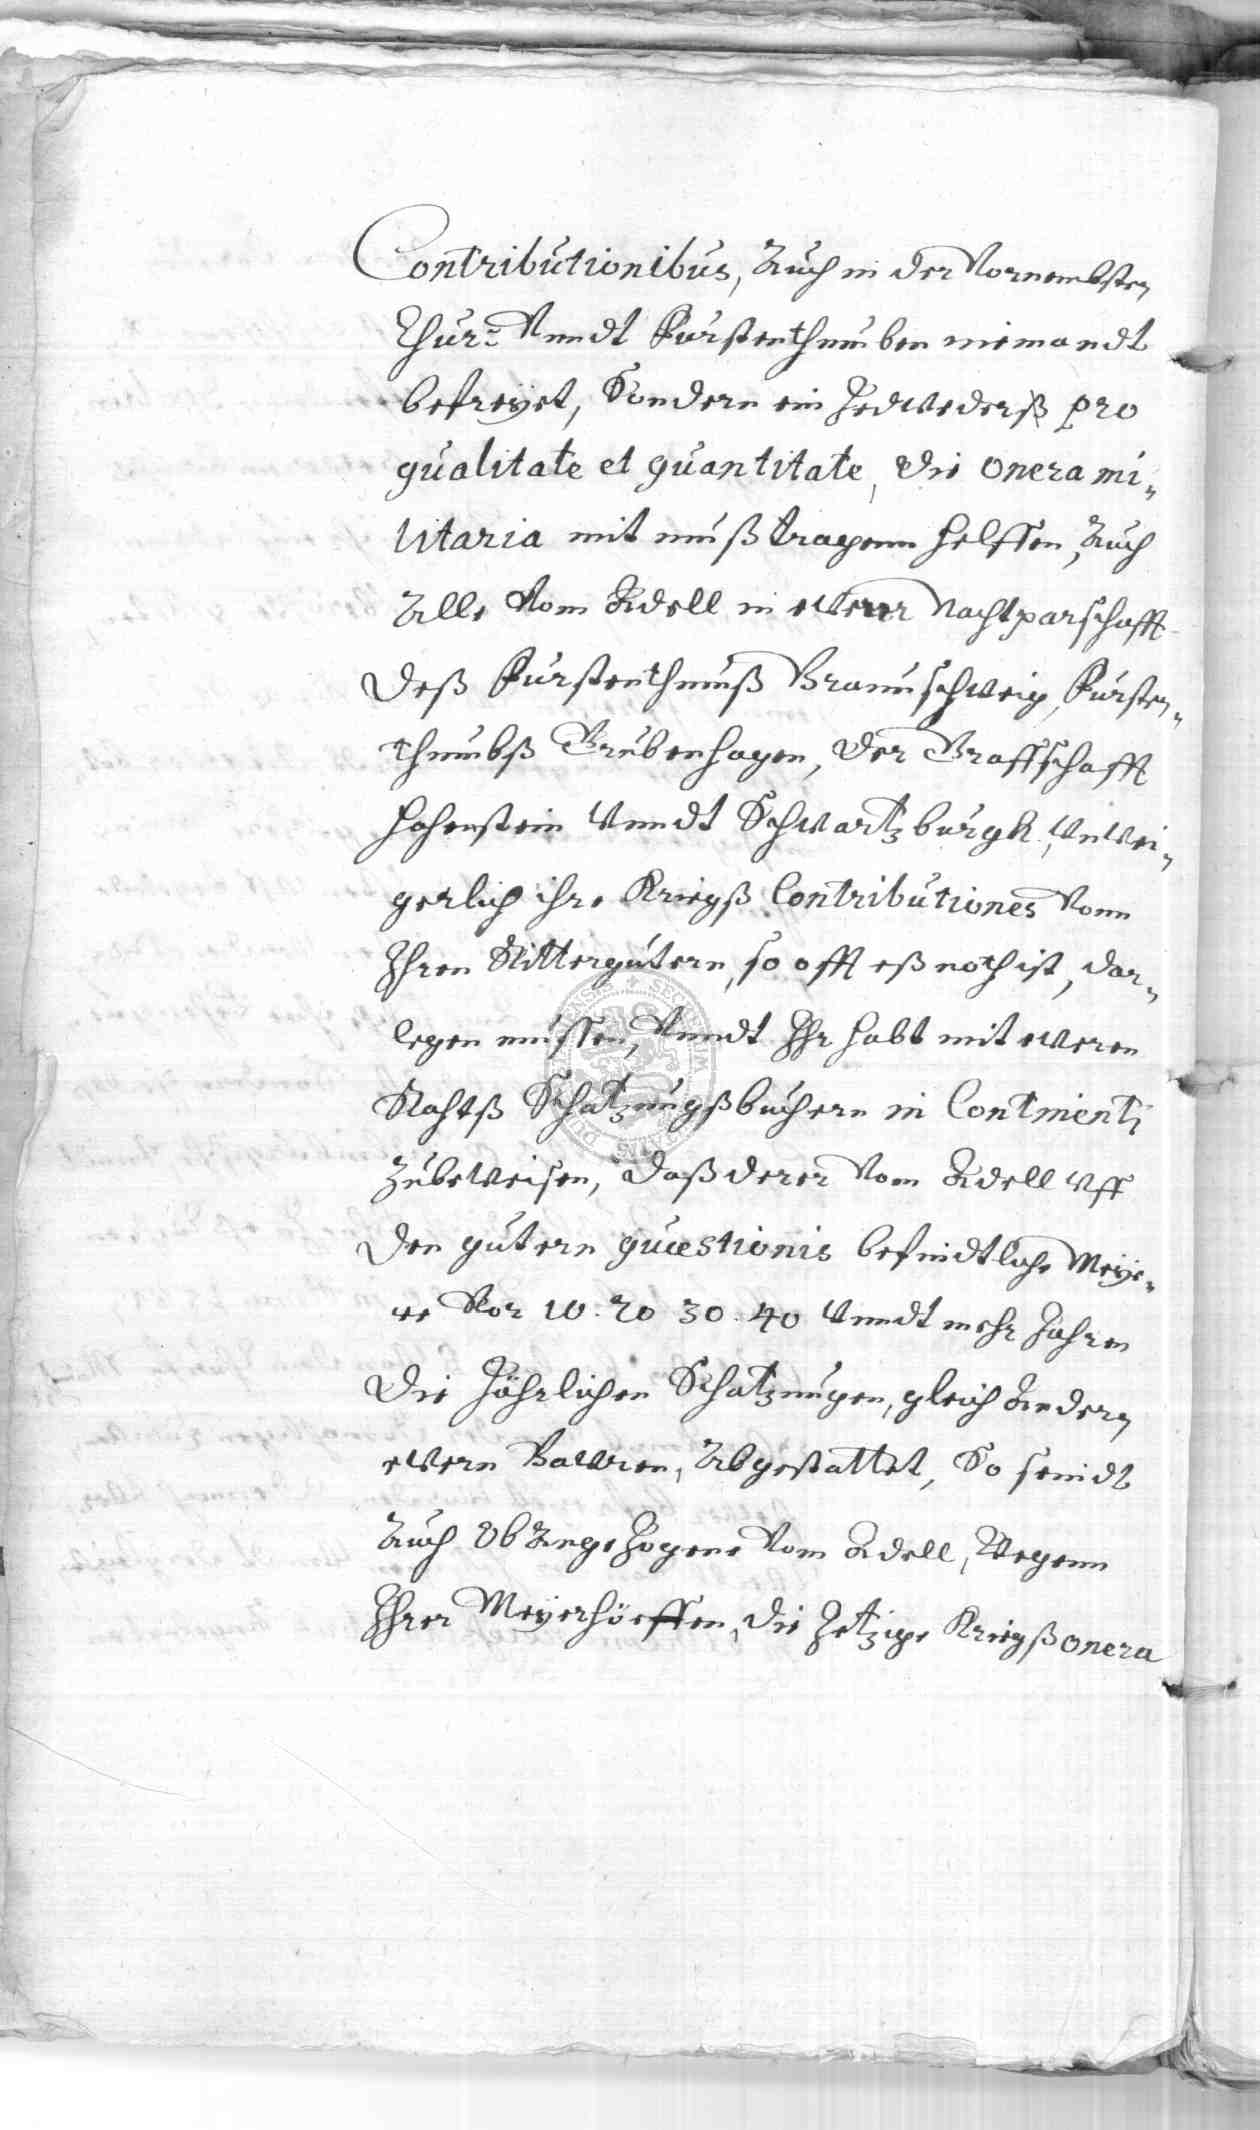 Contributionibus, Auch in der Vornembsten
Chur= Unndt Fürstenthumben niemandt
befreÿet, Sondern ein Jedwederß pro
qualitate et quantitate, die onera mi-
litaria mit muß tragenn helffen, Auch
Alle Vom Adell in ewerer Nachtparschafft
deß Fürstenthumß Braunschweig, Fürsten-
thumbß Grubenhagen, der Graffschafft
Hohenstein Unndt Schwartzburgk, Unwei-
gerlich ihre Kriegß Contributiones Vonn
Ihren Rittergütern, so offt eß noth ist, dar-
legen müssen, Unndt Ihr habt mit eweren
Rahtß Schatzungßbüchern in Continenti
Zubeweisen, daß derer Vom Adell uff
den gütern quæstionis befindtliche Meÿe-
re Vor 10. 20 30. 40 Unndt mehr Jahren
die Jährlichen Schatzungen, gleich Andern
ewern Bawren, Abgestattet, So seindt
Auch Ob Angezogene Vom Adell, Wegenn
Ihrer Meÿerhöeffen, die Jetzige Kriegß onera